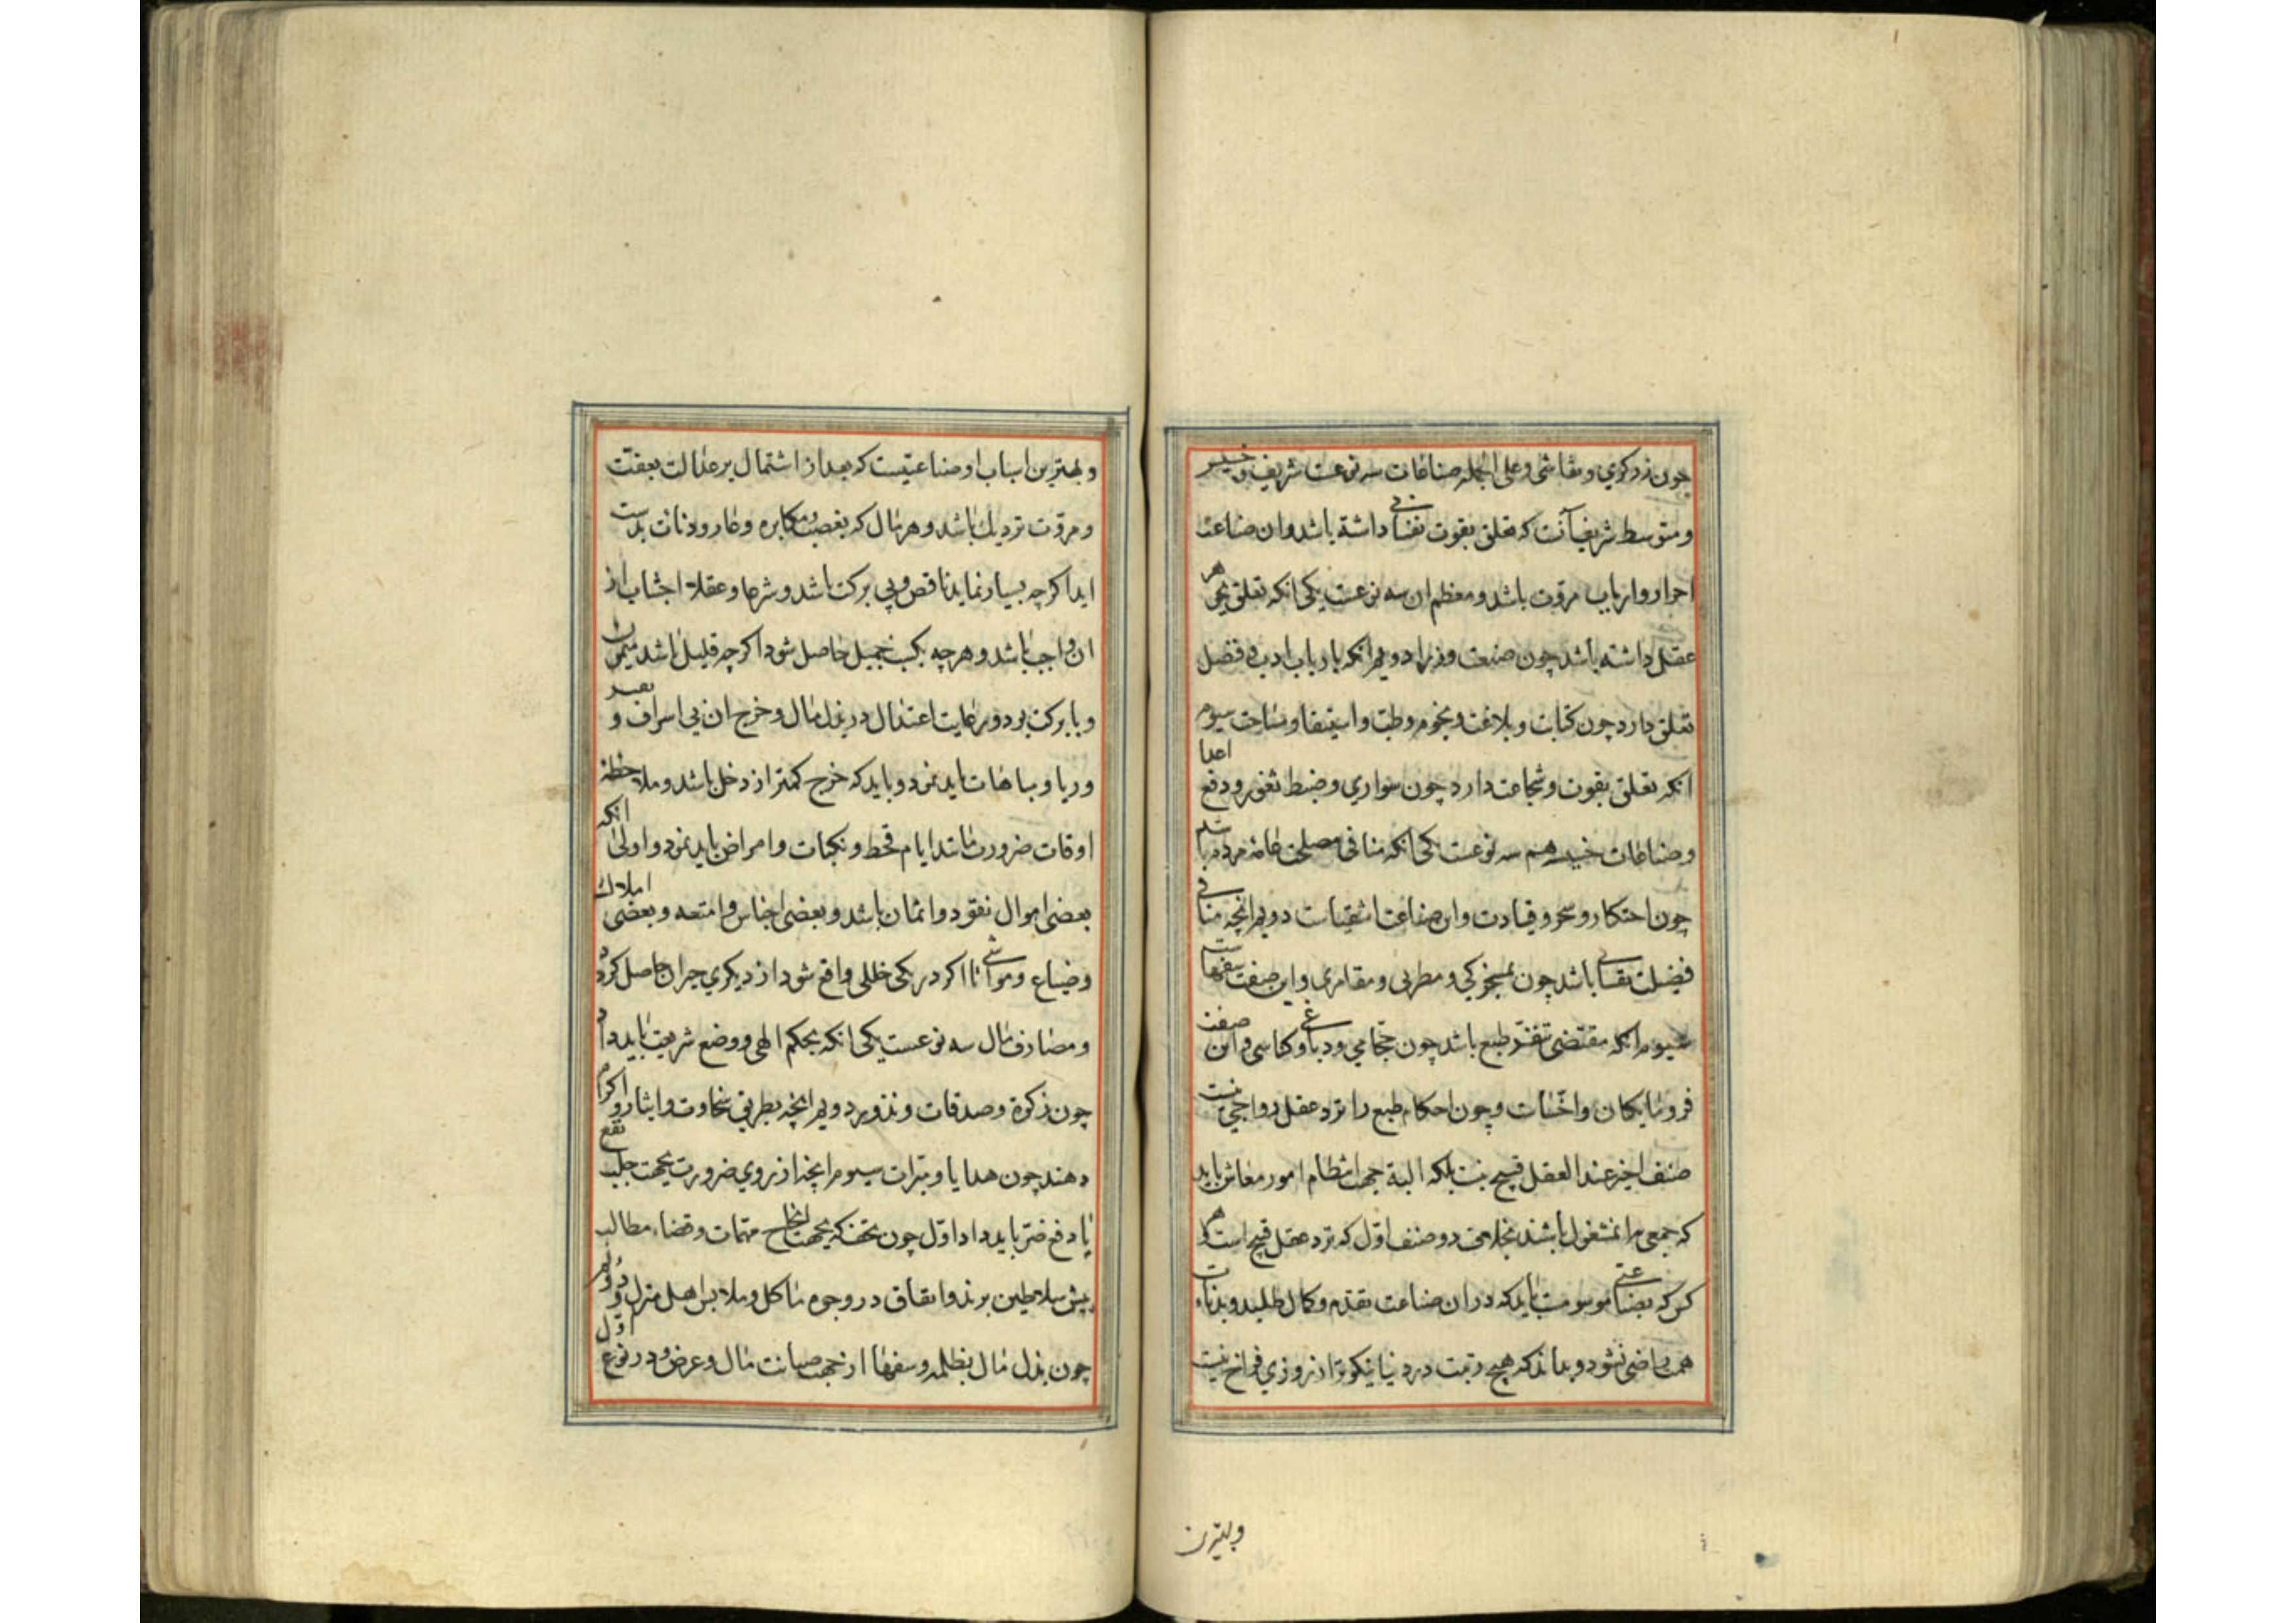 چون زرکری و نقاشی و علی الجمله صناعات سه نوعست شریف و خسیس
و متوسط شریف آنست که تعلق بقوت نفسانی داشته باشد و ان صناعت
احرار و ارباب مروت باشد و معظم ان سه نوعست یکی انکه تعلق بجوهر
عقل داشته باشد چون صنعت وزرا دویم انکه بارباب ادب و فضل
تعلق دارد چون کتابت و بلاغت و نجوم و طب و استیفا و مساحت سیوم
انکه تعلق بقوت و شجاعت دارد چون سواری و ضبط ثغور و دفع اعدا
و صناعات خسیسه هم سه نوعست یکی انکه منافی مصلحت عامه مردم باشد
چون احتکار و سحر و قیادت و این صناعت اشقیاست دویم انچه منافی
فضیلت نفسانی باشد چون مسخرکی و مطربی و مقامری و این صنعت سفهاست
سیوم انکه مقتضی تنفر طبع باشد چون حجامی و دباغی و کناسی و این صنعت
فرومایکان و اخساست و چون احکام طبع را نزد عقل رواجی نیست
صنف اخیر عند العقل قبیح نیست بلکه البته جهت انتظام امور معاش باید
که جمعی مرا مشغول باشند بخلاف دو صنف اول که نزد عقل قبیح است و هر
کس که بصناعتی موسومست باید که دران صناعت تقدم و کمال طلبد و بدنات
همت راضی نشود و بداند که هیچ زینت در دنیا نیکوتر از روزی فراخ نیست
و بهترین
و بهترین اسباب او صناعتیست که بعد از اشتمال بر عدالت بعفت
و مروت نزدیک باشد و هر مال که بغصب و مکابره و عار و دنائت بدست
اید اکرچه بسیار نماید ناقص و بی برکت باشد و شرعا و عقلا اجتناب از
ان واجب باشد و هرچه بکسب جمیل حاصل شود اکرچه قلیل باشد میمون
و بابرکت بود و رعایت اعتدال در بذل مال و خرج ان بی اسراف و تقتیر
و ریا و مباهات باید نمود و باید که خرج کمتر از دخل باشد و ملاحظه
اوقات ضرورت مانند ایام قحط و نکبات و امراض باید نمود و اولی انکه
بعضی اموال نقود و اثمان باشد و بعضی اجناس و امتعه و بعضی املاک
و ضیاع و مواشی تا اکر در یکی خللی واقع شود از دیکری جبران حاصل کردد
و مصارف مال سه نوعست یکی انکه بحکم الهی و وضع شریعت باید داد
چون زکوة و صدقات و نذور دویم انچه بطریق سخاوت و ایثار و اکرام
دهند چون هدایا و مبرات سیوم انچه از روی ضرورت بجهت جلب نفع
یا دفع ضرر باید داد اول چون تحف که بجهت انجاح مهمات و قضاء مطالب
پیش سلاطین برند و انفاق در وجوه ماکل و ملابس اهل منزل و دویم
چون بذل مال بظلمه و سفها از جهت صیانت مال و عرض و در نوع اول